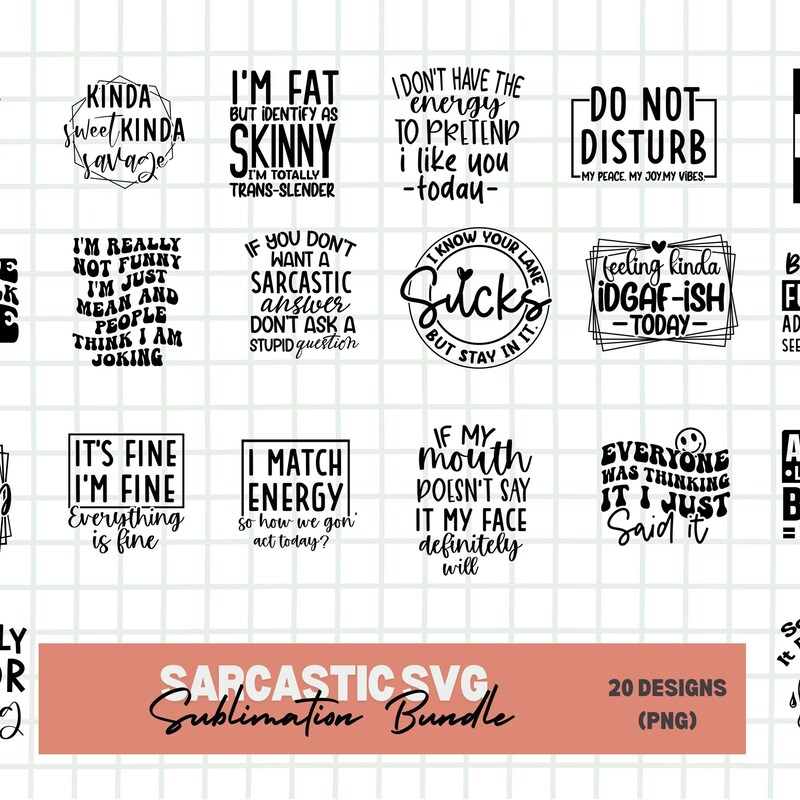 KINDA
sweet KINDA
savage
I'M FAT
BUT iDENTiFY AS
SKINNY
I'M TOTALLY
TRANS-SLENDER
I DON'T HAVE THE
energy
TO PRETEND
i like you
-today-
DO NOT
DISTURB
MY PEACE. MY JOY.MY VIBES.
I'M REALLY
NOT FUNNY
I'M JUST
MEAN AND
PEOPLE
THINK I AM
JOKING
IF YOU DON'T
WANT A
SARCASTIC
answer
DON'T ASK A
STUPID question
I KNOW YOUR LANE
Sucks
BUT STAY IN IT.
feeling kinda
iDGAF-iSH
-TODAY-
AD
SEE
IT'S FINE
I'M FINE
Everything
is fine
I MATCH
ENERGY
so how we gon'
act today?
IF MY
mouth
DOESN'T SAY
IT MY FACE
definitely
will
EVERYONE
WAS THINKING
IT I JUST
Said it
LY
OR
SARCASTIC SVG
Sublimation Bundle
20 DESIGNS
(PNG)